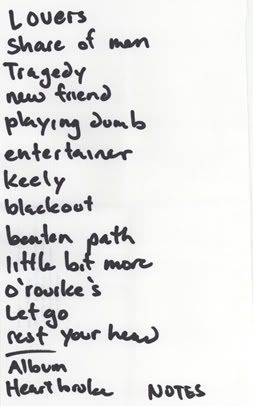 Lovers
Share of men
Tragedy
new friend
playing dumb
entertainer
Keely
blackout
beaten path
little bit more
O'rourke's
Let go
rest your head
Album
Heartbroke NOTES